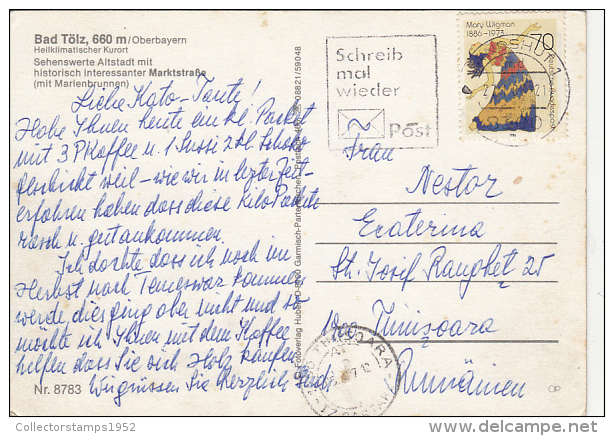 Bad Tölz, 660 m/Oberbayern
Heilklimatischer Kurort
Sehenswerte Altstadt mit
historisch interessanter Marktstraße
(mit Marienbrunnen)
Liebe Kato-Tante!
Habe Ihnen heute ein kl. Packet
mit 3 P Kaffee u. 1 Sussi 2 Schoko
geschickt weil - wie wir in letzter Zeit
erfahren haben dass diese Kilo Packete
rasch u. gut ankommen.
Ich dachte dass ich noch im
Herbst nach Temeswar komme
werde dies ging aber nicht und so
möchte ich Ihnen mit dem Kaffee
helfen dass Sie sich Holz kaufen
Wir grüssen Sie Herzlich
Nr. 8783
Schreib
mal
wieder
Post
Mary Wigman
1886-1973
70
Deutsche Bundespost
Frau
Nestor
Ecaterina
Str. Iosif Ranghet 25
1900 Timișoara
Rumänien
TIMIȘOARA
Collectorstamps1952
delcampe.net